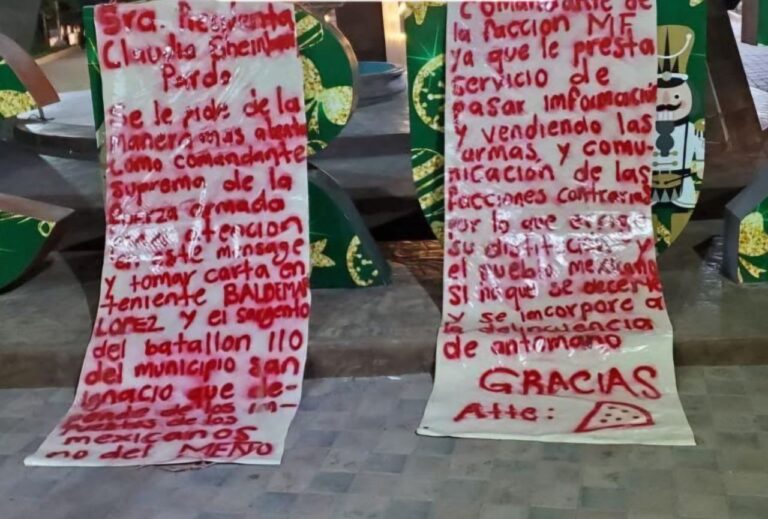 Sra. Presidenta
Claudia Sheinbaum
Pardo
Se le pide de la
manera mas atenta
como comandante
suprema de la
fuerza armada
atencion
este mensage
y tomar carta en
teniente BALDEMAR
LOPEZ y el sargento
del batallon 110
del municipio san
ignacio que de-
pende de los im-
puestos de los
mexicanos
no del MENTO
Comandante de
la faccion MF
ya que le presta
servicio de
pasar información
y vendiendo las
armas, y comu-
nicación de las
facciones contrarias
por lo que exige
su distitución y
el pueblo mexicano
si no que se decerte
y se incorpore a
la delincuencia
de antemano
GRACIAS
Atte: